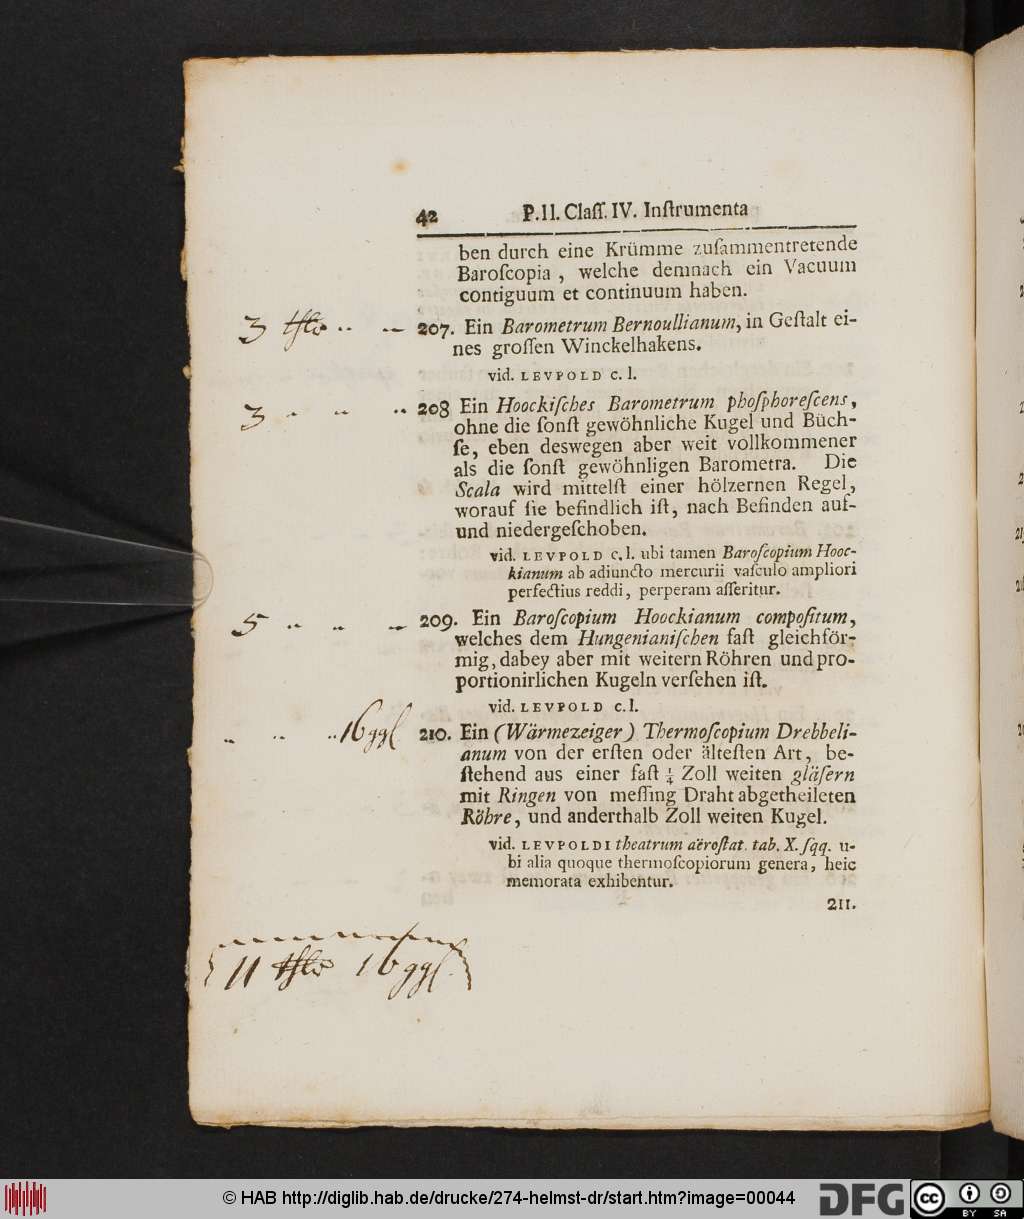 42 P.II. Claſſ. IV. Inſtrumenta
ben durch eine Krümme zuſammentretende
Baroſcopia, welche demnach ein Vacuum
contiguum et continuum haben.
3 thlr " " 207. Ein Barometrum Bernoullianum, in Geſtalt ei-
nes groſſen Winckelhakens.
vid. LEVPOLD c. l.
3 " " " 208 Ein Hoockiſches Barometrum phoſphoreſcens,
ohne die ſonſt gewöhnliche Kugel und Büch-
ſe, eben deswegen aber weit vollkommener
als die ſonſt gewöhnligen Barometra. Die
Scala wird mittelſt einer hölzernen Regel,
worauf ſie befindlich iſt, nach Befinden auf-
und niedergeſchoben.
vid. LEVPOLD c. l. ubi tamen Baroſcopium Hooc-
kianum ab adiuncto mercurii vaſculo ampliori
perfectius reddi, perperam aſſeritur.
5 " " " 209. Ein Baroſcopium Hoockianum compoſitum,
welches dem Hungenianiſchen faſt gleichför-
mig, dabey aber mit weitern Röhren und pro-
portionirlichen Kugeln verſehen iſt.
vid. LEVPOLD c. l.
" " " 16 ggl 210. Ein (Wärmezeiger) Thermoſcopium Drebbeli-
anum von der erſten oder älteſten Art, be-
ſtehend aus einer faſt ¼ Zoll weiten gläſern
mit Ringen von meſſing Draht abgetheileten
Röhre, und anderthalb Zoll weiten Kugel.
vid. LEVPOLDI theatrum aëroſtat. tab. X. ſqq. u-
bi alia quoque thermoſcopiorum genera, heic
memorata exhibentur.
211.
11 thlr 16 ggl.
© HAB http://diglib.hab.de/drucke/274-helmst-dr/start.htm?image=00044
DFG
cc BY SA